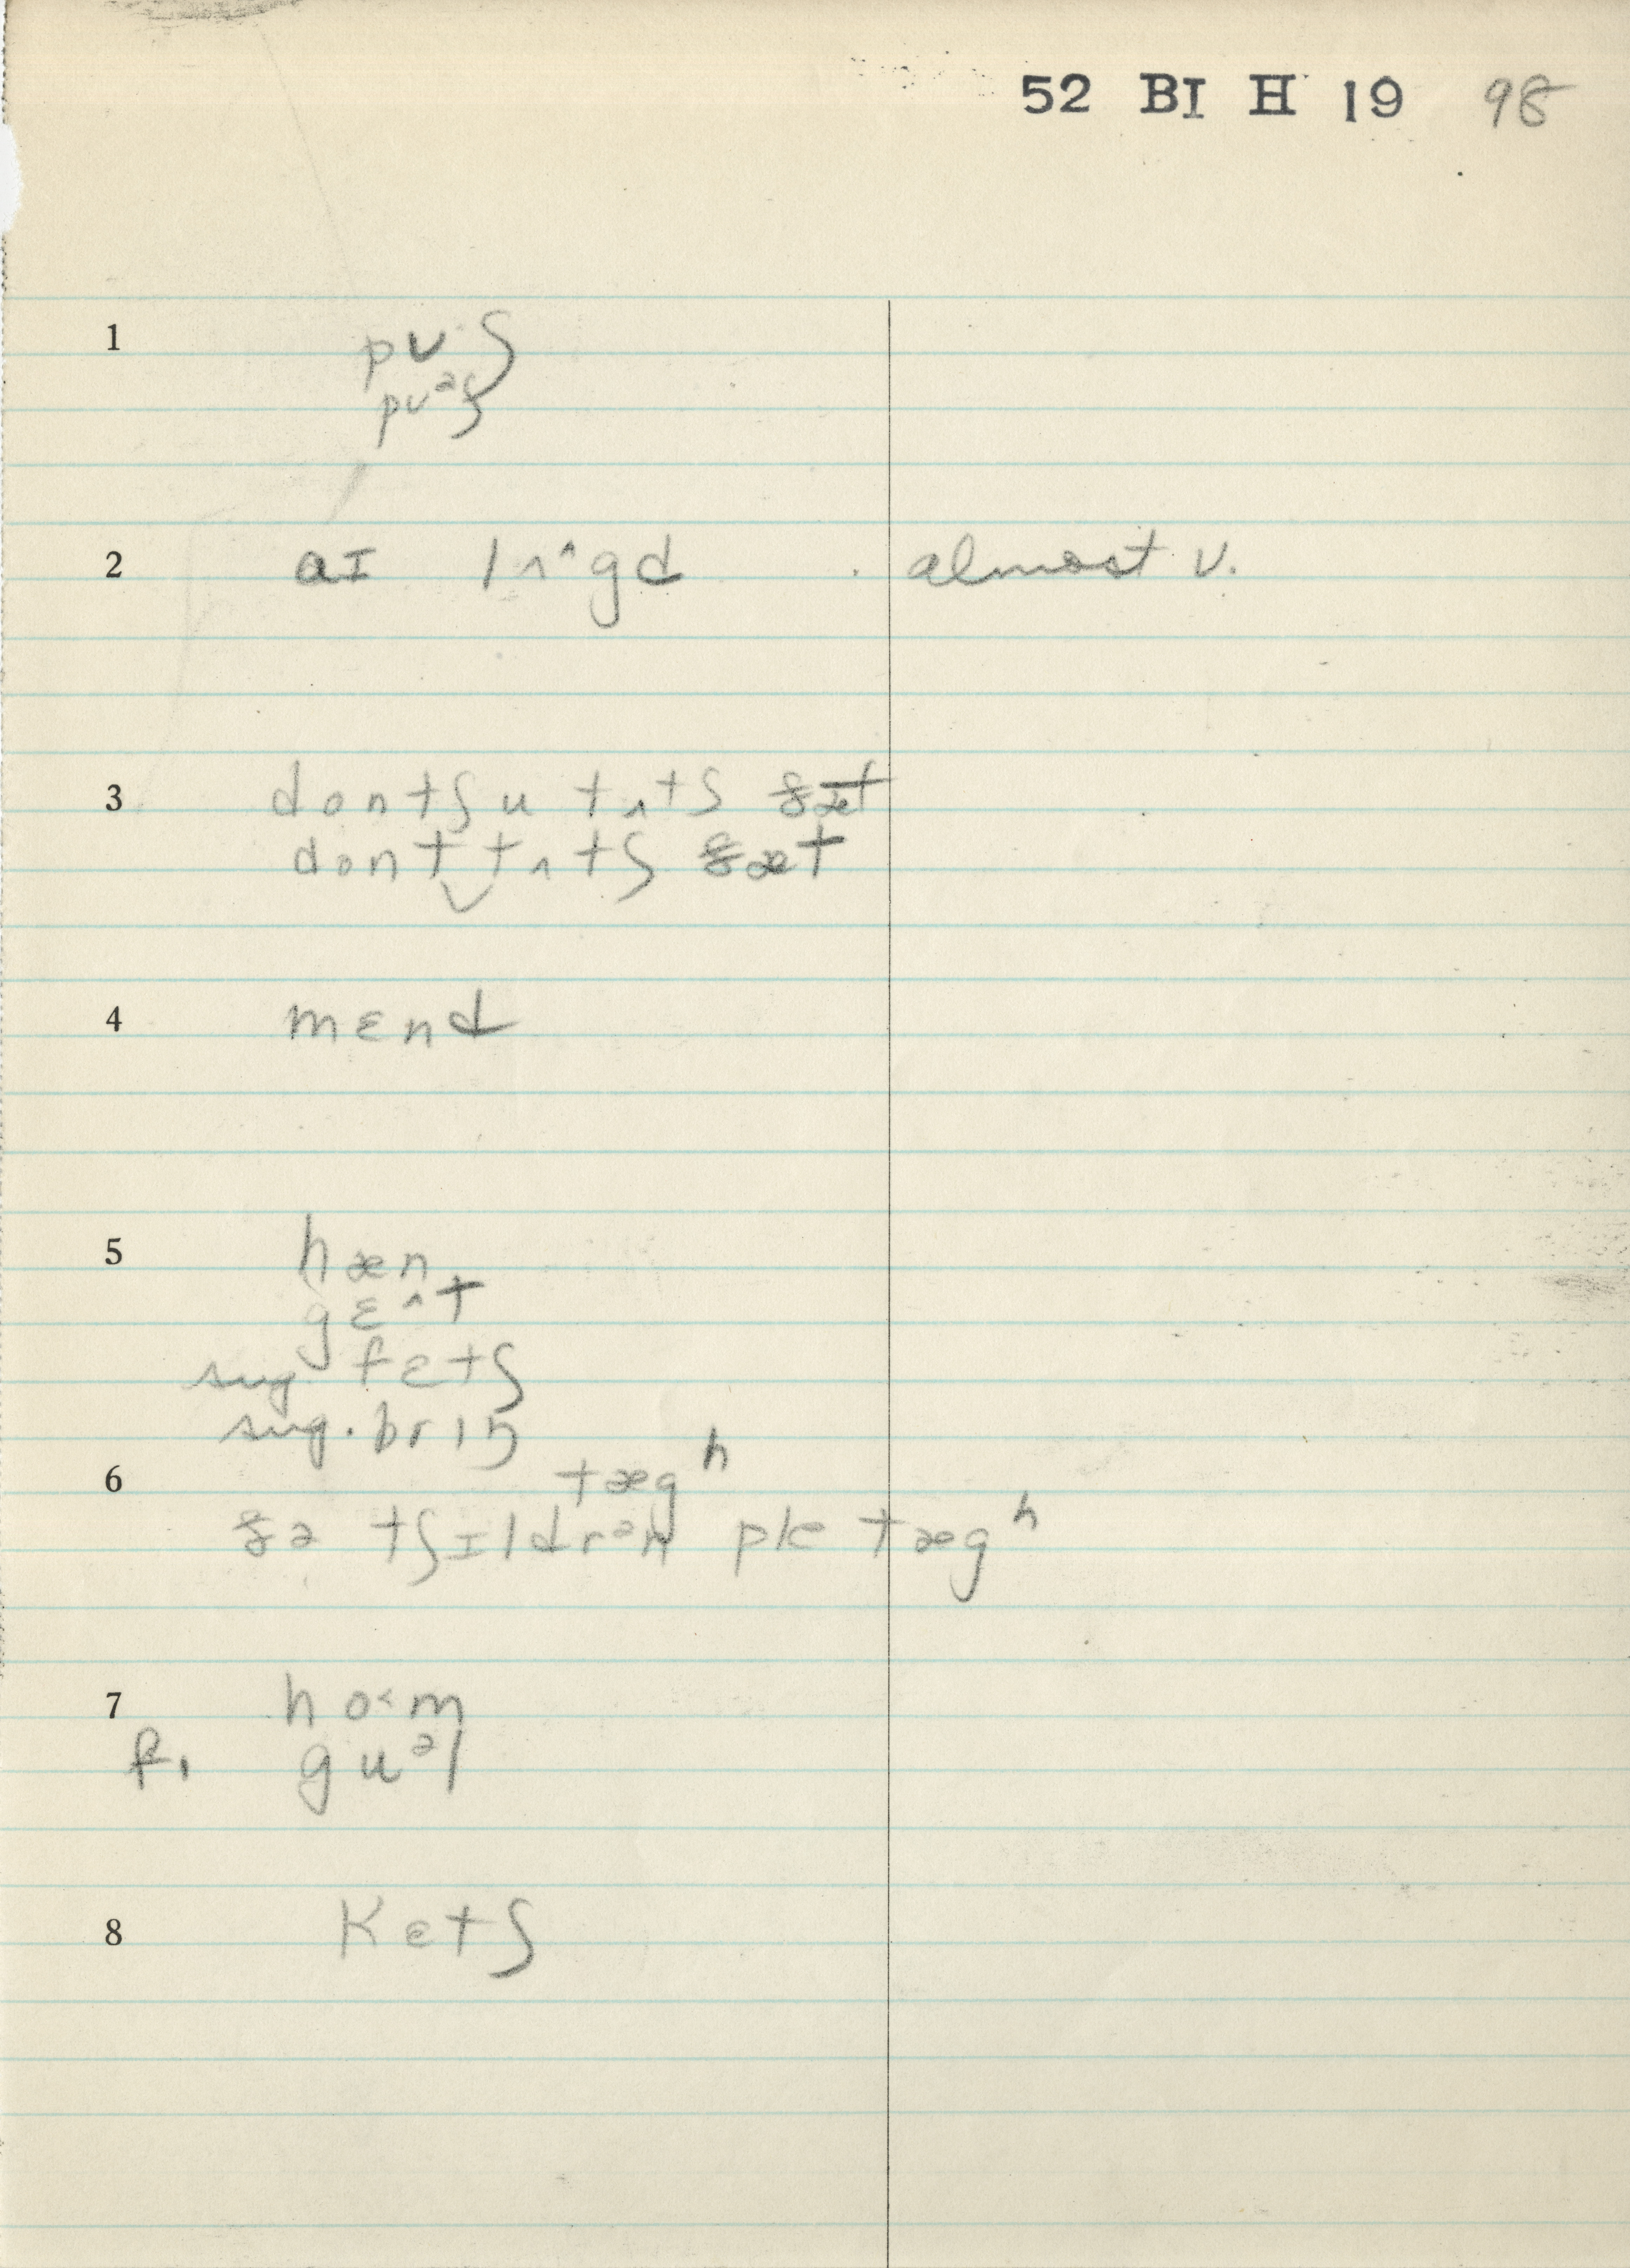 52 BI H 19 98
1 pʊʃ
pʊᵊʃ
2 aɪ lʌ^gd almost v.
3 dontʃu tʌtʃ ðæt
dont‿tʌtʃ ðæt
4 mɛnd
5 hæn
gɛ^t
sug. fɛtʃ
sug. brɪŋ
6 tægʰ
ðə tʃɪldrᵊn ple tægʰ
7 ho˂m
f. guᵊl
8 Ketʃ